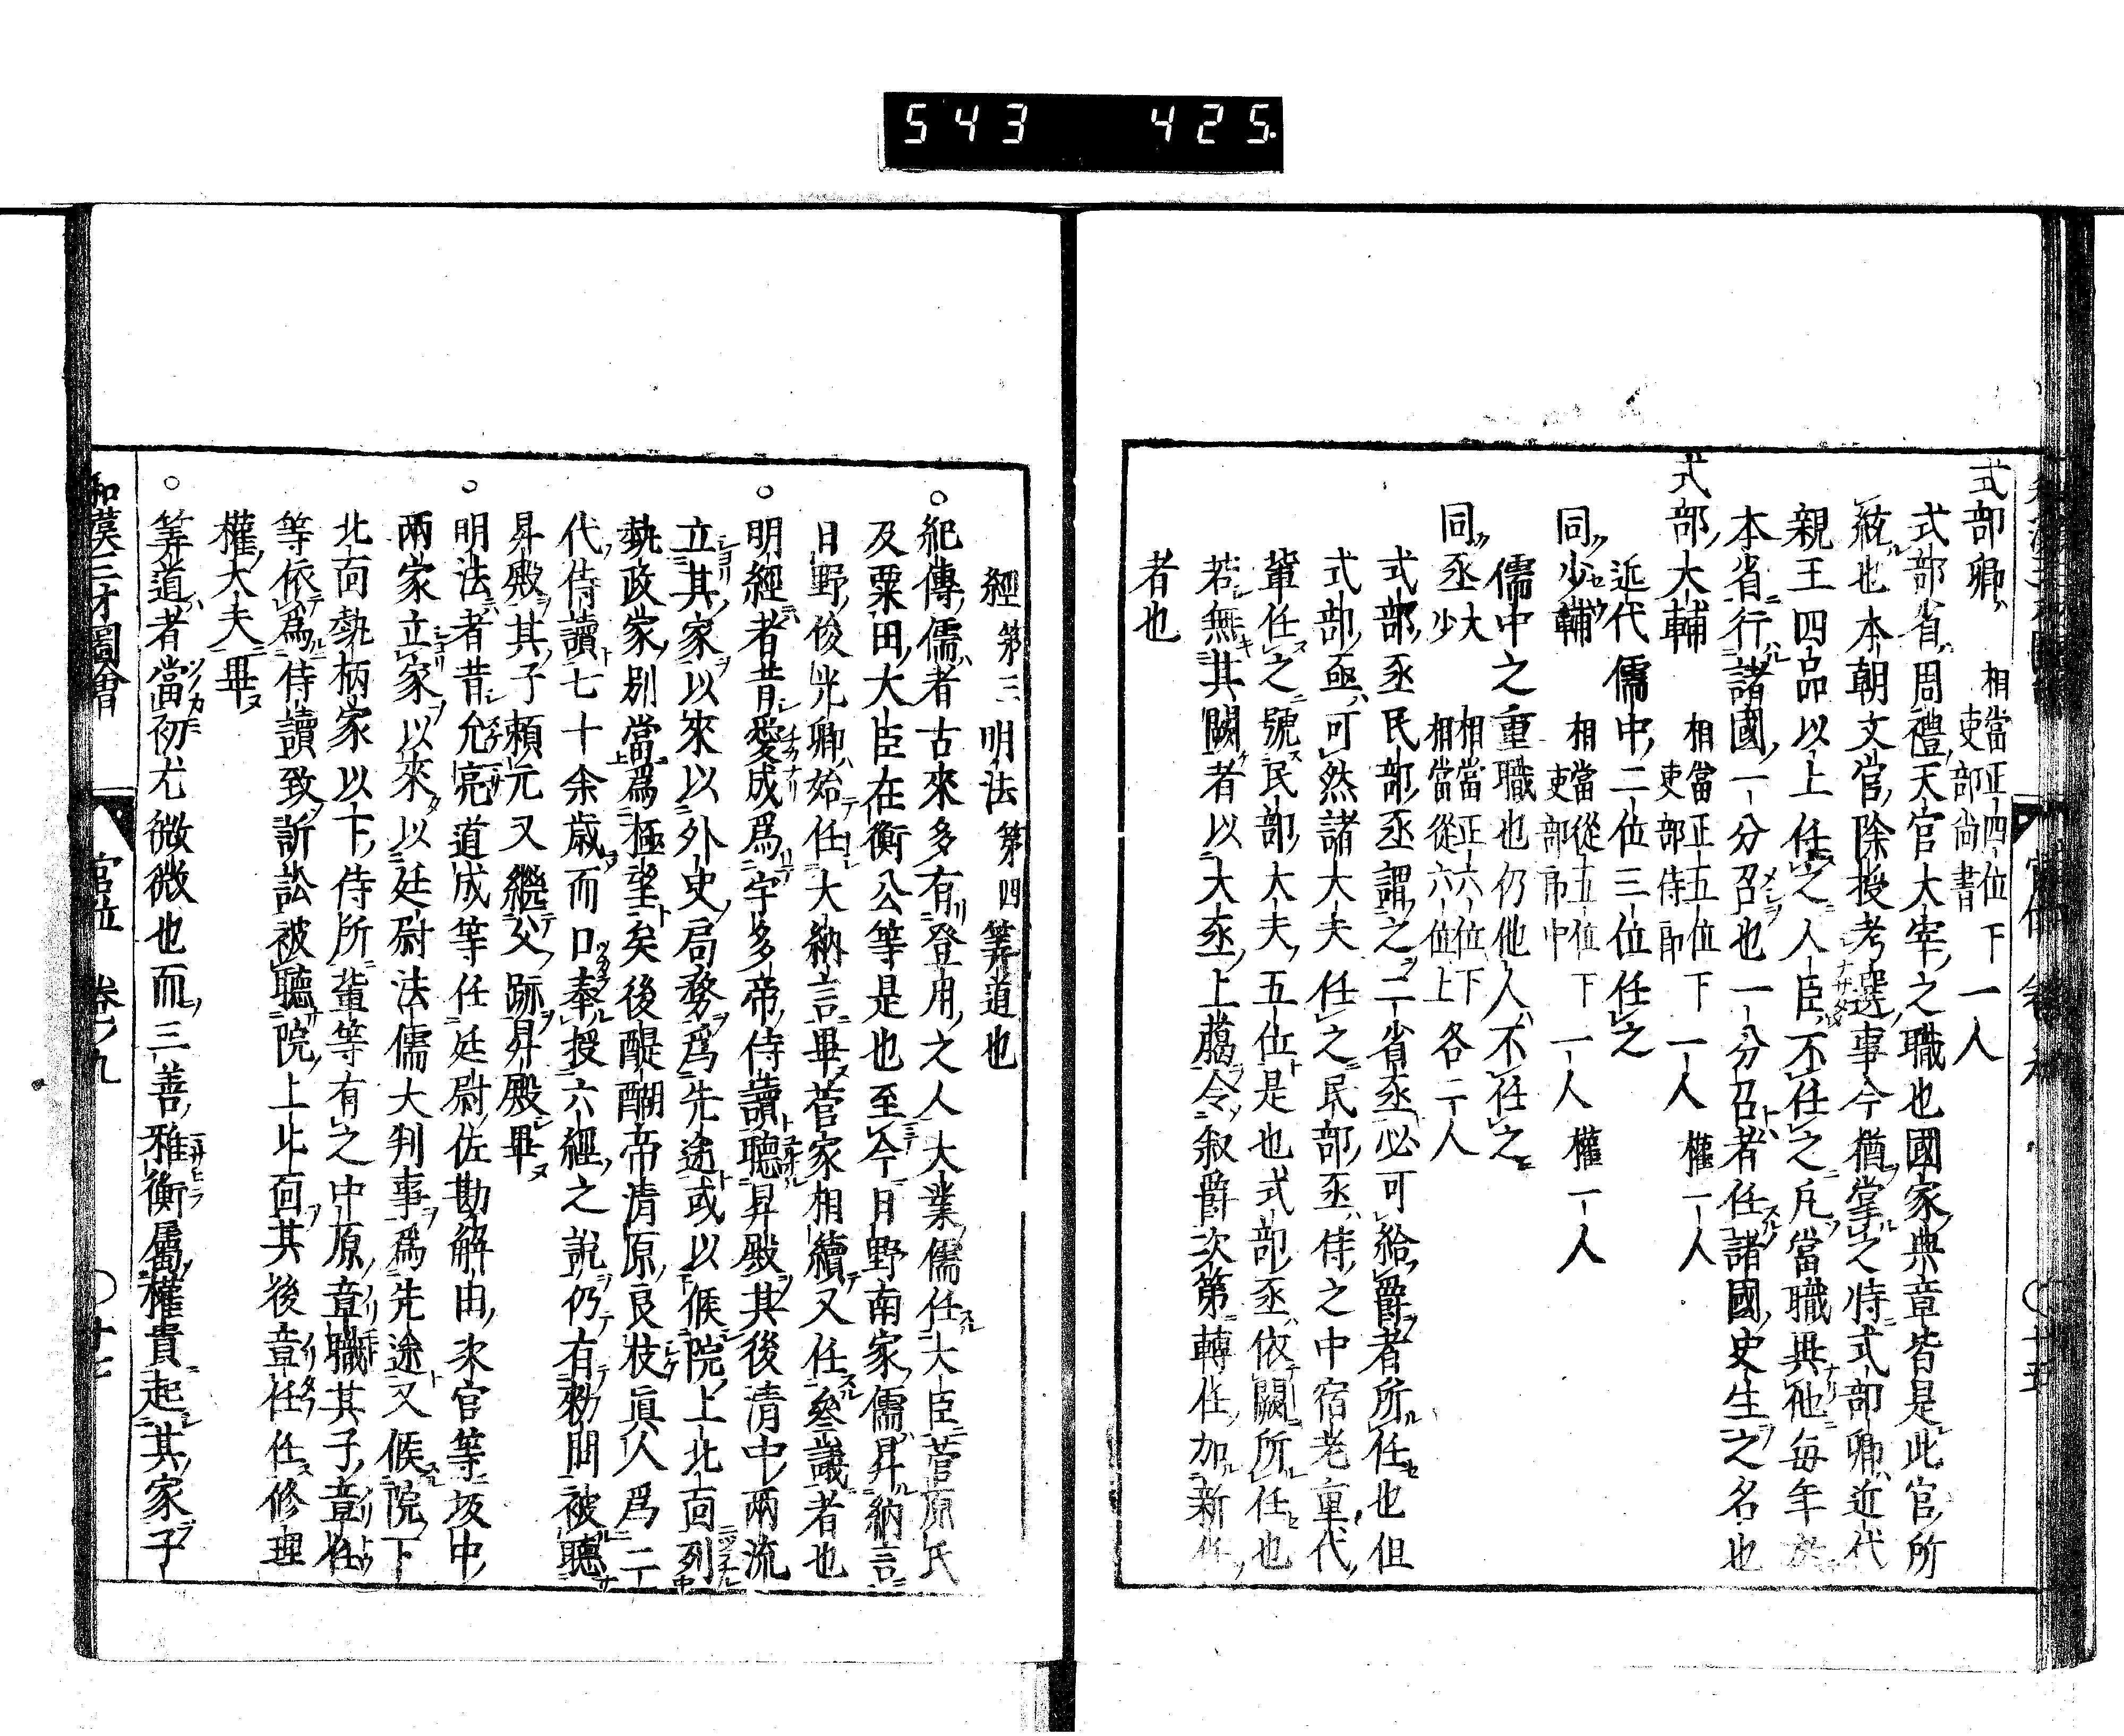 543 425
式部卿 相當正四位下 一人
吏部尚書
式部省周禮天官大宰之職也國家典章皆是此官所
紋也本朝文官除授考選事今猶掌之時式部卿近代
親王四品以上任之人臣不任之凡當職與他毎年於
本省行諸國一分召也一分召者任諸國史生之名也
式部大輔 相當正五位下 一人 權一人
吏部侍郎
近代儒中二位三位任之
同少輔 相當從五位下 一人 權一人
吏部郎中
儒中之重職也仍他人不任之
同丞 大 相當正六位下 各二人
少 相當從六位上
式部丞民部丞謂之二省丞必可給爵者所任也但
式部亟可然諸大夫任之民部丞侍之中宿老重代
輩任之號民部大夫五位是也式部丞依闕所任也
若無其闕者以大丞上﨟令叙爵次第轉任加新任
者也
經第三明法第四筭道也
○紀傳儒者古來多有登用之人大業儒任大臣菅原氏
及粟田大臣在衡公等是也至今日野南家儒昇納言
日野俊光卿始任大納言畢菅家相續又任叅議者也
○明經者昔愛成爲宇多帝侍讀聽昇殿其後清中兩流
立其家以來以外史局務爲先途或以候院上北面列
執政家別當爲極望矣後醍醐帝清原良枝眞人爲二
代侍讀七十余歳而口奉授六經之說仍有勅問被聽
昇殿其子賴元又繼父跡昇殿畢
○明法者昔允亮道成等任廷尉佐勘解由次官等坂中
兩家立家以來以廷尉法儒大判事爲先途又候院下
北面執柄家以下侍所輩等有之中原章職其子章任
等依爲侍讀致訴訟被聽院上北面其後章任任修理
權大夫畢
○筭道者當初尤微微也而三善雅衡屬權貴起其家子
和漢三才圖會 官位 卷ノ九 ○十七